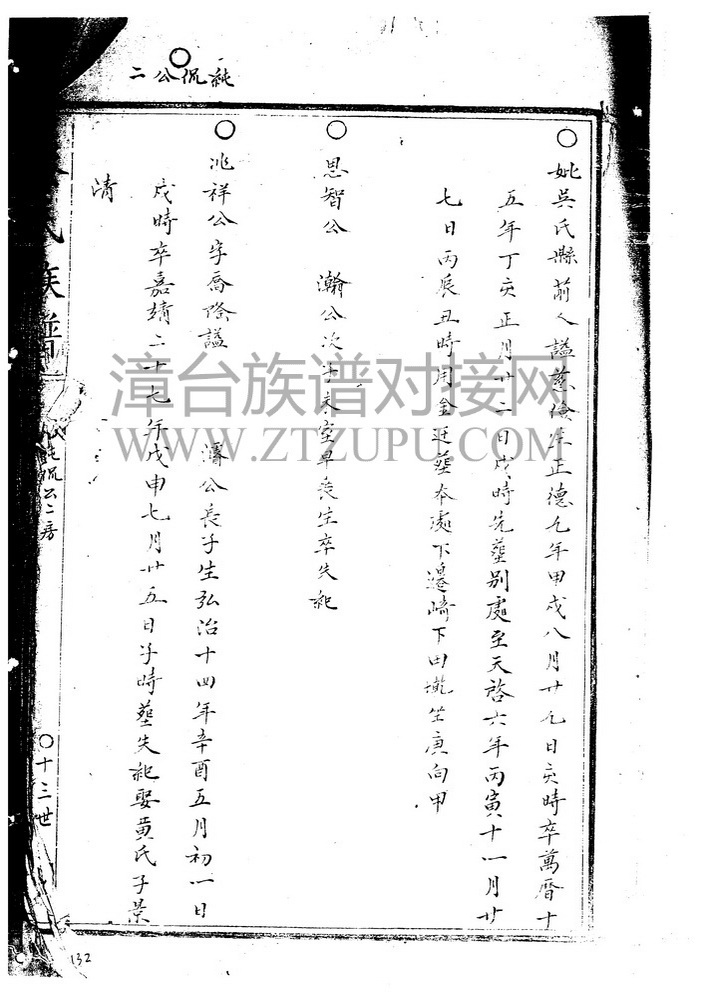 二公侃純
妣吳氏縣前人謚慈儉生正德九年甲戌八月廿九日亥時卒萬曆十
五年丁亥正月廿二日戌時先塟別處至天啓六年丙寅十一月廿
七日丙辰丑時用金迁塟本處下邊崎下田壠坐庚向甲
思智公 瀚公次子未室早喪生卒失紀
兆祥公字喬 謚 濬公長子生弘治十四年辛酉五月初一日
戌時卒嘉靖二十七年戊申七月廿五日子時塟失紀娶黃氏子景
清
氏族譜
純侃公二房
十三世
漳台族谱对接网
WWW.ZTZUPU.COM
132